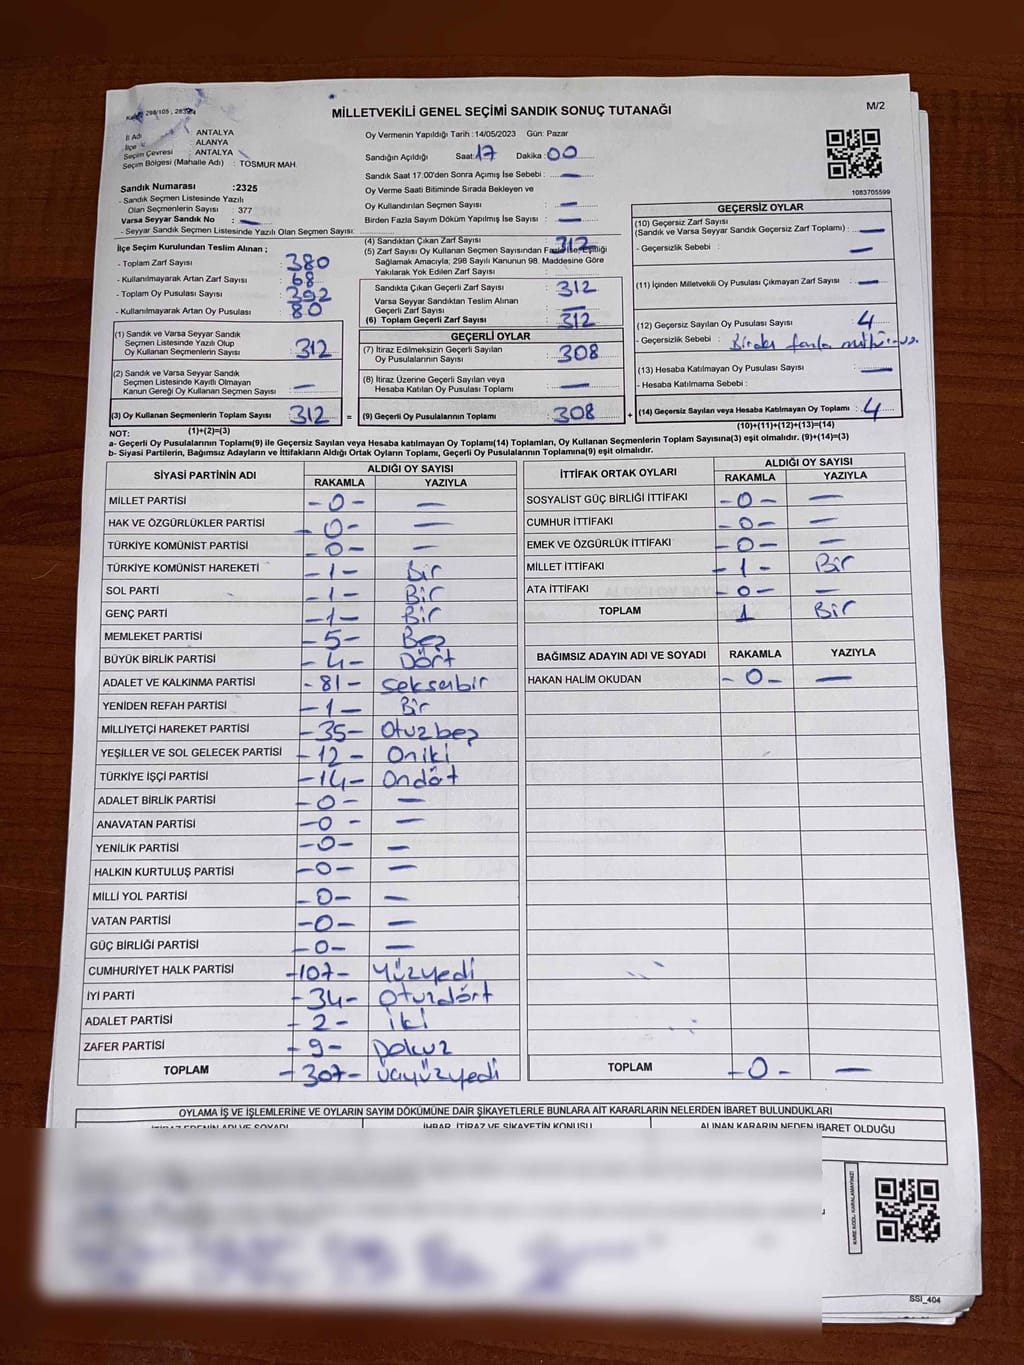 MİLLETVEKİLİ GENEL SEÇİMİ SANDIK SONUÇ TUTANAĞI
M/2
298/105
İl Adı ANTALYA
İlçe ALANYA
Seçim Çevresi ANTALYA
Seçim Bölgesi (Mahalle Adı) : TOSMUR MAH.
Sandık Numarası :2325
- Sandık Seçmen Listesinde Yazılı
Olan Seçmenlerin Sayısı : 377
Varsa Seyyar Sandık No : —
- Seyyar Sandık Seçmen Listesinde Yazılı Olan Seçmen Sayısı:
Oy Vermenin Yapıldığı Tarih : 14/05/2023 Gün: Pazar
Sandığın Açıldığı Saat:17 Dakika:00
Sandık Saat 17:00'den Sonra Açımış İse Sebebi : —
Oy Verme Saati Bitiminde Sırada Bekleyen ve
Oy Kullandırılan Seçmen Sayısı : —
Birden Fazla Sayım Döküm Yapılmış İse Sayısı : —
1083705599
İlçe Seçim Kurulundan Teslim Alınan ;
- Toplam Zarf Sayısı : 380
- Kullanılmayarak Artan Zarf Sayısı : 68
- Toplam Oy Pusulası Sayısı : 392
- Kullanılmayarak Artan Oy Pusulası : 80
(1) Sandık ve Varsa Seyyar Sandık
Seçmen Listesinde Yazılı Olup
Oy Kullanan Seçmenlerin Sayısı : 312
(2) Sandık ve Varsa Seyyar Sandık
Seçmen Listesinde Kayıtlı Olmayan
Kanun Gereği Oy Kullanan Seçmen Sayısı : —
(3) Oy Kullanan Seçmenlerin Toplam Sayısı : 312 =
(1)+(2)=(3)
(4) Sandıktan Çıkan Zarf Sayısı : 312
(5) Zarf Sayısı Oy Kullanan Seçmen Sayısından Fazla İse, Eşitliği
Sağlamak Amacıyla; 298 Sayılı Kanunun 98. Maddesine Göre
Yakılarak Yok Edilen Zarf Sayısı :
Sandıkta Çıkan Geçerli Zarf Sayısı : 312
Varsa Seyyar Sandıktan Teslim Alınan
Geçerli Zarf Sayısı : —
(6) Toplam Geçerli Zarf Sayısı : 312
GEÇERLİ OYLAR
(7) İtiraz Edilmeksizin Geçerli Sayılan
Oy Pusulalarının Sayısı : 308
(8) İtiraz Üzerine Geçerli Sayılan veya
Hesaba Katılan Oy Pusulası Toplamı : —
(9) Geçerli Oy Pusulalarının Toplamı : 308 +
GEÇERSİZ OYLAR
(10) Geçersiz Zarf Sayısı
(Sandık ve Varsa Seyyar Sandık Geçersiz Zarf Toplamı) : —
- Geçersizlik Sebebi : —
(11) İçinden Milletvekili Oy Pusulası Çıkmayan Zarf Sayısı : —
(12) Geçersiz Sayılan Oy Pusulası Sayısı : 4
- Geçersizlik Sebebi : Birden fazla
(13) Hesaba Katılmayan Oy Pusulası Sayısı : —
- Hesaba Katılmama Sebebi :
(14) Geçersiz Sayılan veya Hesaba Katılmayan Oy Toplamı : 4
(10)+(11)+(12)+(13)=(14)
NOT:
a- Geçerli Oy Pusulalarının Toplamı(9) ile Geçersiz Sayılan veya Hesaba katılmayan Oy Toplamı(14) Toplamları, Oy Kullanan Seçmenlerin Toplam Sayısına(3) eşit olmalıdır. (9)+(14)=(3)
b- Siyasi Partilerin, Bağımsız Adayların ve İttifakların Aldığı Ortak Oyların Toplamı, Geçerli Oy Pusulalarının Toplamına(9) eşit olmalıdır.
SİYASİ PARTİNİN ADI ALDIĞI OY SAYISI
RAKAMLA YAZIYLA
MİLLET PARTİSİ -0- —
HAK VE ÖZGÜRLÜKLER PARTİSİ -0- —
TÜRKİYE KOMÜNİST PARTİSİ -0- —
TÜRKİYE KOMÜNİST HAREKETİ -1- Bir
SOL PARTİ -1- Bir
GENÇ PARTİ -1- Bir
MEMLEKET PARTİSİ -5- Beş
BÜYÜK BİRLİK PARTİSİ -4- Dört
ADALET VE KALKINMA PARTİSİ -81- Seksenbir
YENİDEN REFAH PARTİSİ -1- Bir
MİLLİYETÇİ HAREKET PARTİSİ -35- Otuzbeş
YEŞİLLER VE SOL GELECEK PARTİSİ -12- Oniki
TÜRKİYE İŞÇİ PARTİSİ -14- Ondört
ADALET BİRLİK PARTİSİ -0- —
ANAVATAN PARTİSİ -0- —
YENİLİK PARTİSİ -0- —
HALKIN KURTULUŞ PARTİSİ -0- —
MİLLİ YOL PARTİSİ -0- —
VATAN PARTİSİ -0- —
GÜÇ BİRLİĞİ PARTİSİ -0- —
CUMHURİYET HALK PARTİSİ -107- Yüzyedi
İYİ PARTİ -34- Otuzdört
ADALET PARTİSİ -2- iki
ZAFER PARTİSİ -9- Dokuz
TOPLAM -307- Üçyüzyedi
İTTİFAK ORTAK OYLARI ALDIĞI OY SAYISI
RAKAMLA YAZIYLA
SOSYALİST GÜÇ BİRLİĞİ İTTİFAKI -0- —
CUMHUR İTTİFAKI -0- —
EMEK VE ÖZGÜRLÜK İTTİFAKI -0- —
MİLLET İTTİFAKI -1- Bir
ATA İTTİFAKI -0- —
TOPLAM 1 Bir
BAĞIMSIZ ADAYIN ADI VE SOYADI RAKAMLA YAZIYLA
HAKAN HALİM OKUDAN -0- —
TOPLAM -0- —
OYLAMA İŞ VE İŞLEMLERİNE VE OYLARIN SAYIM DÖKÜMÜNE DAİR ŞİKAYETLERLE BUNLARA AİT KARARLARIN NELERDEN İBARET BULUNDUKLARI
İTİRAZ EDENİN ADI VE SOYADI İHBAR, İTİRAZ VE ŞİKAYETİN KONUSU ALINAN KARARIN NEDEN İBARET OLDUĞU
KARE KODU KARALAMAYINIZ!
SSI_404